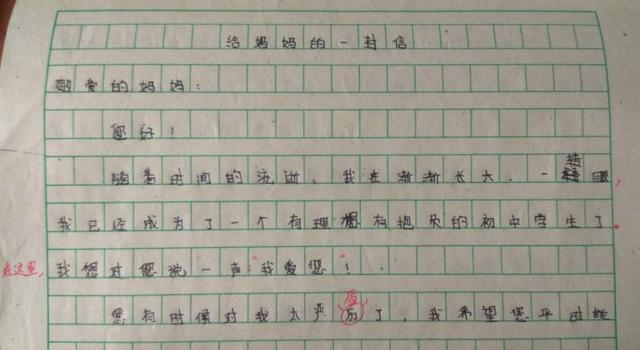 给妈妈的一封信
敬爱的妈妈：
您好！
随着时间的流逝，我在渐渐长大，一转眼，
我已经成为了一个有理想有抱负的初中学生了。
在这里，我想对您说一声："我爱您"！
您有时候对我太严厉了，我希望您平时能